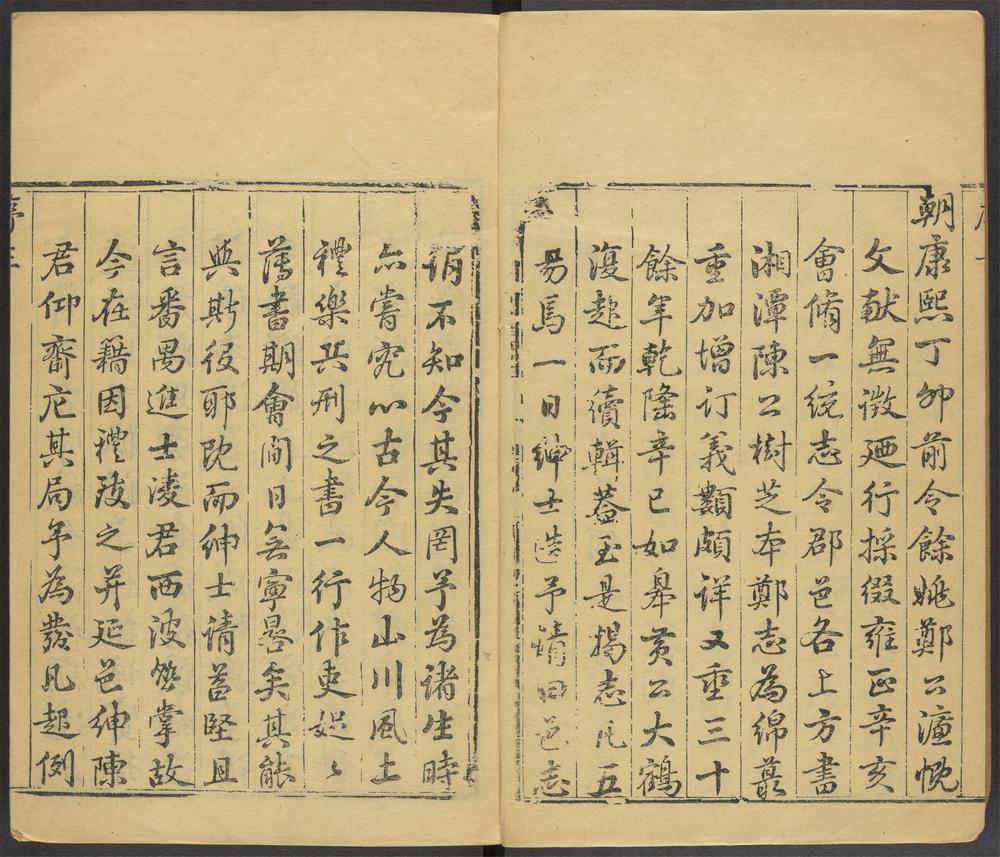 朝康熙丁卯前令餘姚鄭公濂慨
文献無徵廼行採綴雍正辛亥
會脩一統志令郡邑各上方書
湘潭陳公樹芝本鄭志為綿蕞
重加增订義類頗详又垂三十
餘年乾隆辛巳如皋黄公大鶴
復起而續輯葢至是揭志凡五
易焉一日紳士造予請曰邑志
俏不知今其失罔予為诸生時
亦嘗究心古今人物山川風土
禮樂兵刑之書一行作吏娖〻
薄書期會間日无寧晷矣其能
與斯役耶既而紳士请益堅且
言番禺進士淩君西波煢掌故
今在籍因禮致之并延邑紳陳
君仰齋庀其局予為發凡起例